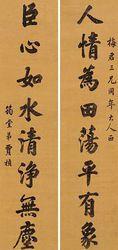 梅君三兄同年大人西
人情為田蕩平有象
臣心如水清淨無塵
筠堂弟賈楨